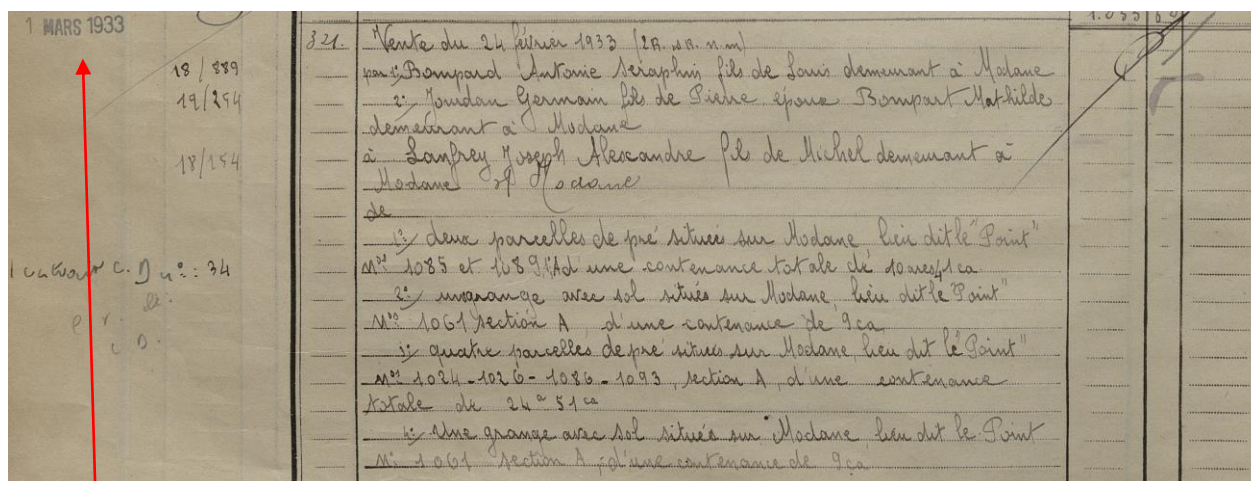 1 MARS 1933
1.055 60
321. Vente du 24 février 1933 (2R. sR. n. m)
18/889
par 1º/ Bompard Antonie Seraphin fils de Louis demeurant à Modane
19/254
2º/ Jourdan Germain fils de Pierre époux Bompart Mathilde
demeurant à Modane
18/154
à Lanfrey Joseph Alexandre fils de Michel demeurant à
Modane Modane
de
1º/ deux parcelles de pré situées sur Modane lieu dit le "Point"
C. D nº: 34
Nos 1085 et 1089 A d'une contenance totale de 10 ares 41 ca
2º/ une grange avec sol situés sur Modane, lieu dit le "Point"
Nº 1061 section A, d'une contenance de 9 ca
3º/ quatre parcelles de pré situées sur Modane, lieu dit le "Point"
Nos 1024-1026-1086-1093, section A, d'une contenance
totale de 24 a 51 ca
4º/ Une grange avec sol situés sur Modane, lieu dit le Point
Nº 1061 section A, d'une contenance de 9 ca